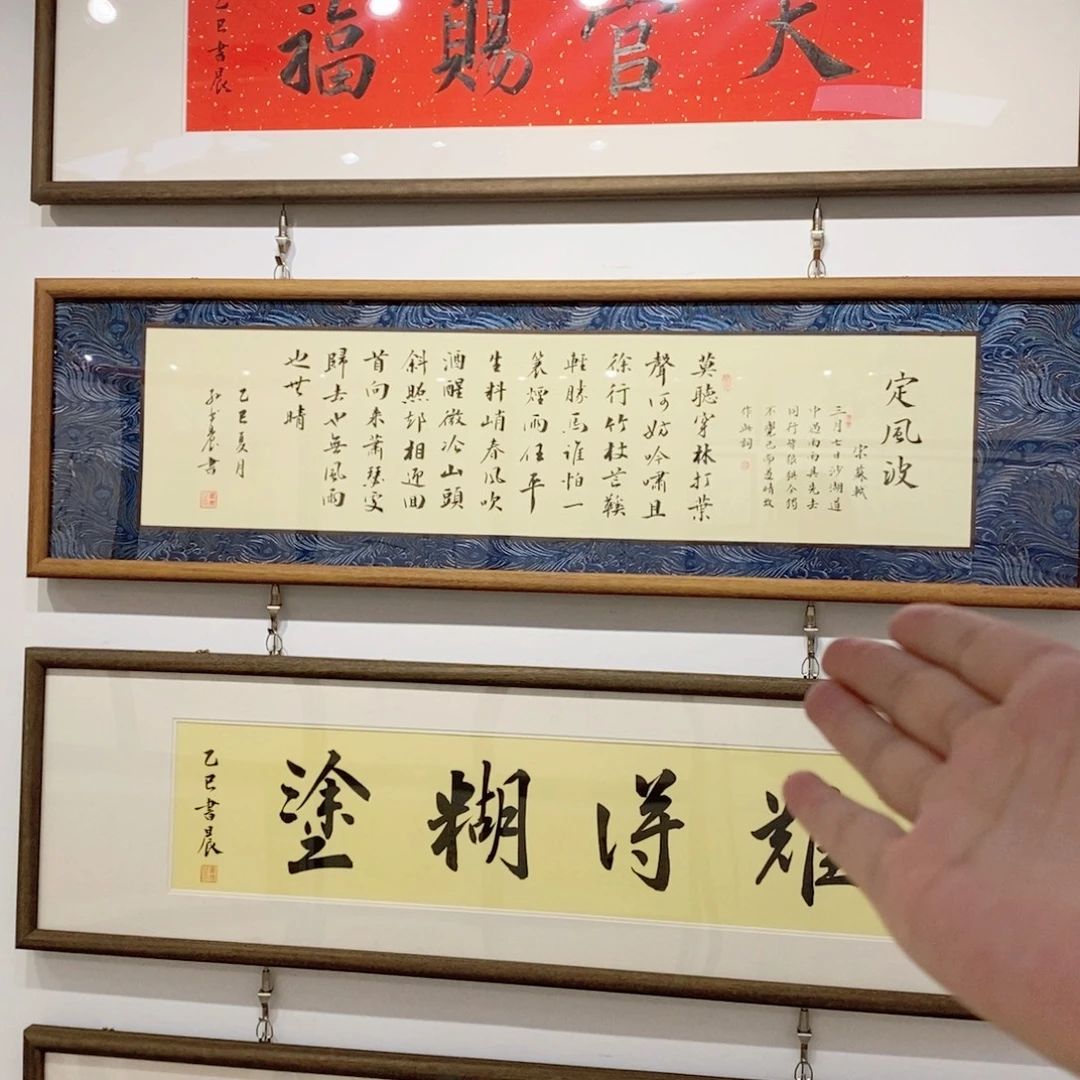 天官賜福
乙巳書晨
定風波
宋蘇軾
三月七日沙湖道
中遇雨雨具先去
同行皆狼狽余獨
不覺已而遂晴故
作此詞
莫聽穿林打葉
聲何妨吟嘯且
徐行竹杖芒鞋
輕勝馬誰怕一
蓑煙雨任平
生料峭春風吹
酒醒微冷山頭
斜照却相迎回
首向来蕭瑟處
歸去也無風雨
也無晴
乙巳夏月
孔書晨書
難得糊塗
乙巳書晨